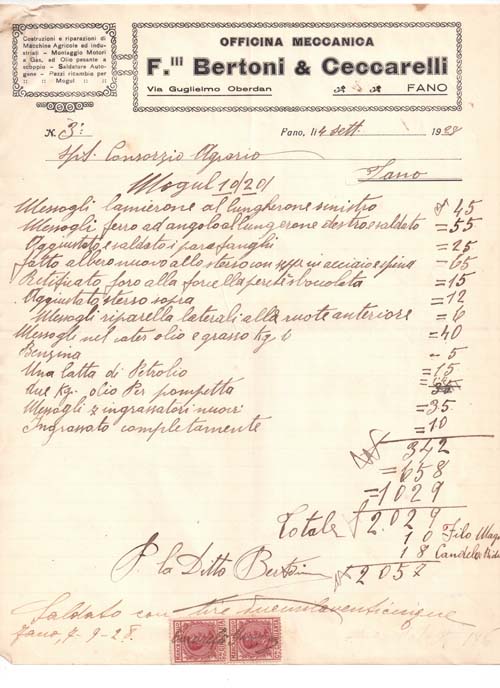 Costruzioni e riparazioni di
Macchine Agricole ed indu-
striali - Montaggio Motori
a Gas, ad Olio pesante a
scoppio - Saldature Auto-
gene - Pezzi ricambio per
Mogul
OFFICINA MECCANICA
F.lli Bertoni & Ceccarelli
Via Guglielmo Oberdan FANO
N. 3: Fano, lì 4 sett. 1928
Spt. Consorzio Agrario
Fano
Mogul 10/20
Messogli lamierone al lungherone sinistro 45
Messogli ferro ad angolo al lungerone destro e saldato = 55
Aggiustato e saldato i parafanghi = 25
fatto albero nuovo allo sterso con in acciaio e spina = 65
Rettificato foro alla forcella perché sboccolata = 15
Aggiustato sterso sopra = 12
Messogli riparella laterali alla ruote anteriore = 6
Messogli nel cater olio e grasso Kg. = 40
Benzina - 5
Una latta di Petrolio = 15
due Kg. olio Per pompetta
Messogli 2 ingrassatori nuovi = 35
Ingrassato completamente = 10
342
= 658
= 1029
Totale 2.029
10 Filo
18 Candele
2057
P. la Ditta Bertoni
Saldato con lire
Fano, 9-28